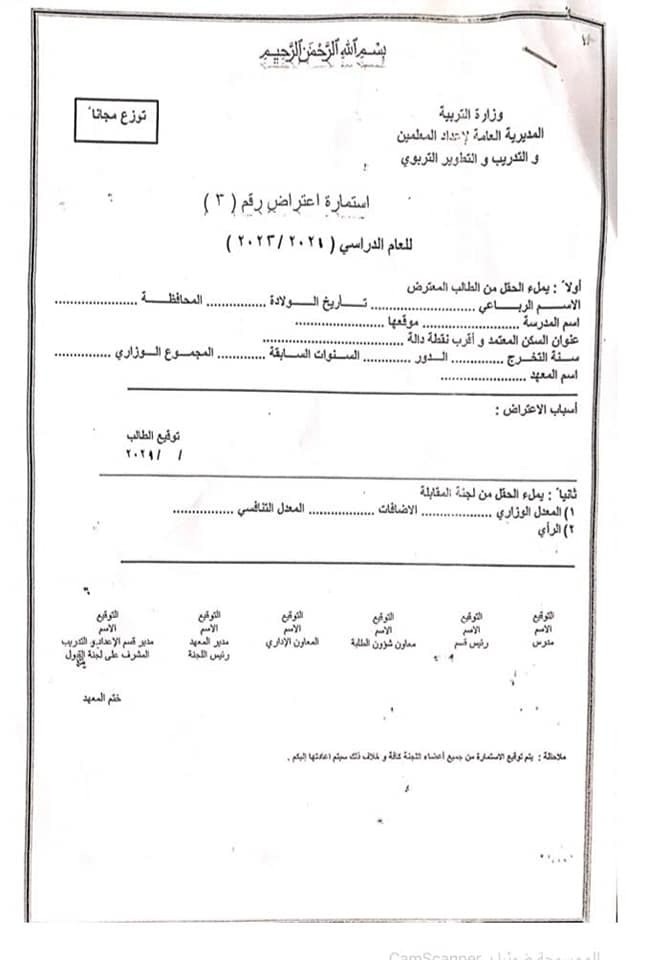 بسم الله الرحمن الرحيم
توزع مجاناً
وزارة التربية
المديرية العامة لإعداد المعلمين
و التدريب و التطوير التربوي
استمارة اعتراض رقم ( ٣ )
للعام الدراسي ( ٢٠٢١ / ٢٠٢٣ )
أولاً : يملء الحقل من الطالب المعترض
الاسم الرباعي .................... تأريخ الولادة ............... المحافظة ....................
اسم المدرسة .................... موقعها ....................
عنوان السكن المعتمد و أقرب نقطة دالة ..............................
سنة التخرج ............ الدور ............ السنوات السابقة ............ المجموع الوزاري ..............
اسم المعهد ....................
أسباب الاعتراض :
توقيع الطالب
/ /
ثانياً : يملء الحقل من لجنة المقابلة
١) المعدل الوزاري ................ الاضافات ................ المعدل التنافسي ...............
٢) الرأي
التوقيع التوقيع التوقيع التوقيع التوقيع التوقيع
الاسم الاسم الاسم الاسم الاسم الاسم
مدرس رئيس قسم معاون شؤون الطلبة المعاون الإداري مدير المعهد مدير قسم الإعداد و التدريب
رئيس اللجنة المشرف على لجنة القبول
ختم المعهد
ملاحظة : يتم توقيع الاستمارة من جميع أعضاء اللجنة كافة و خلاف ذلك سيتم اعادتها إليكم .
الممسوحة ضوئيا بـ CamScanner